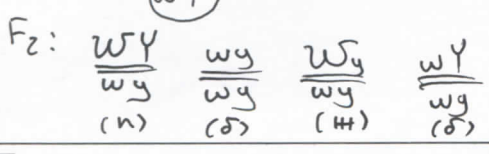 F₂: WY wy Wy wY
wy wy wy wy
(п) (б) (ж) (б)